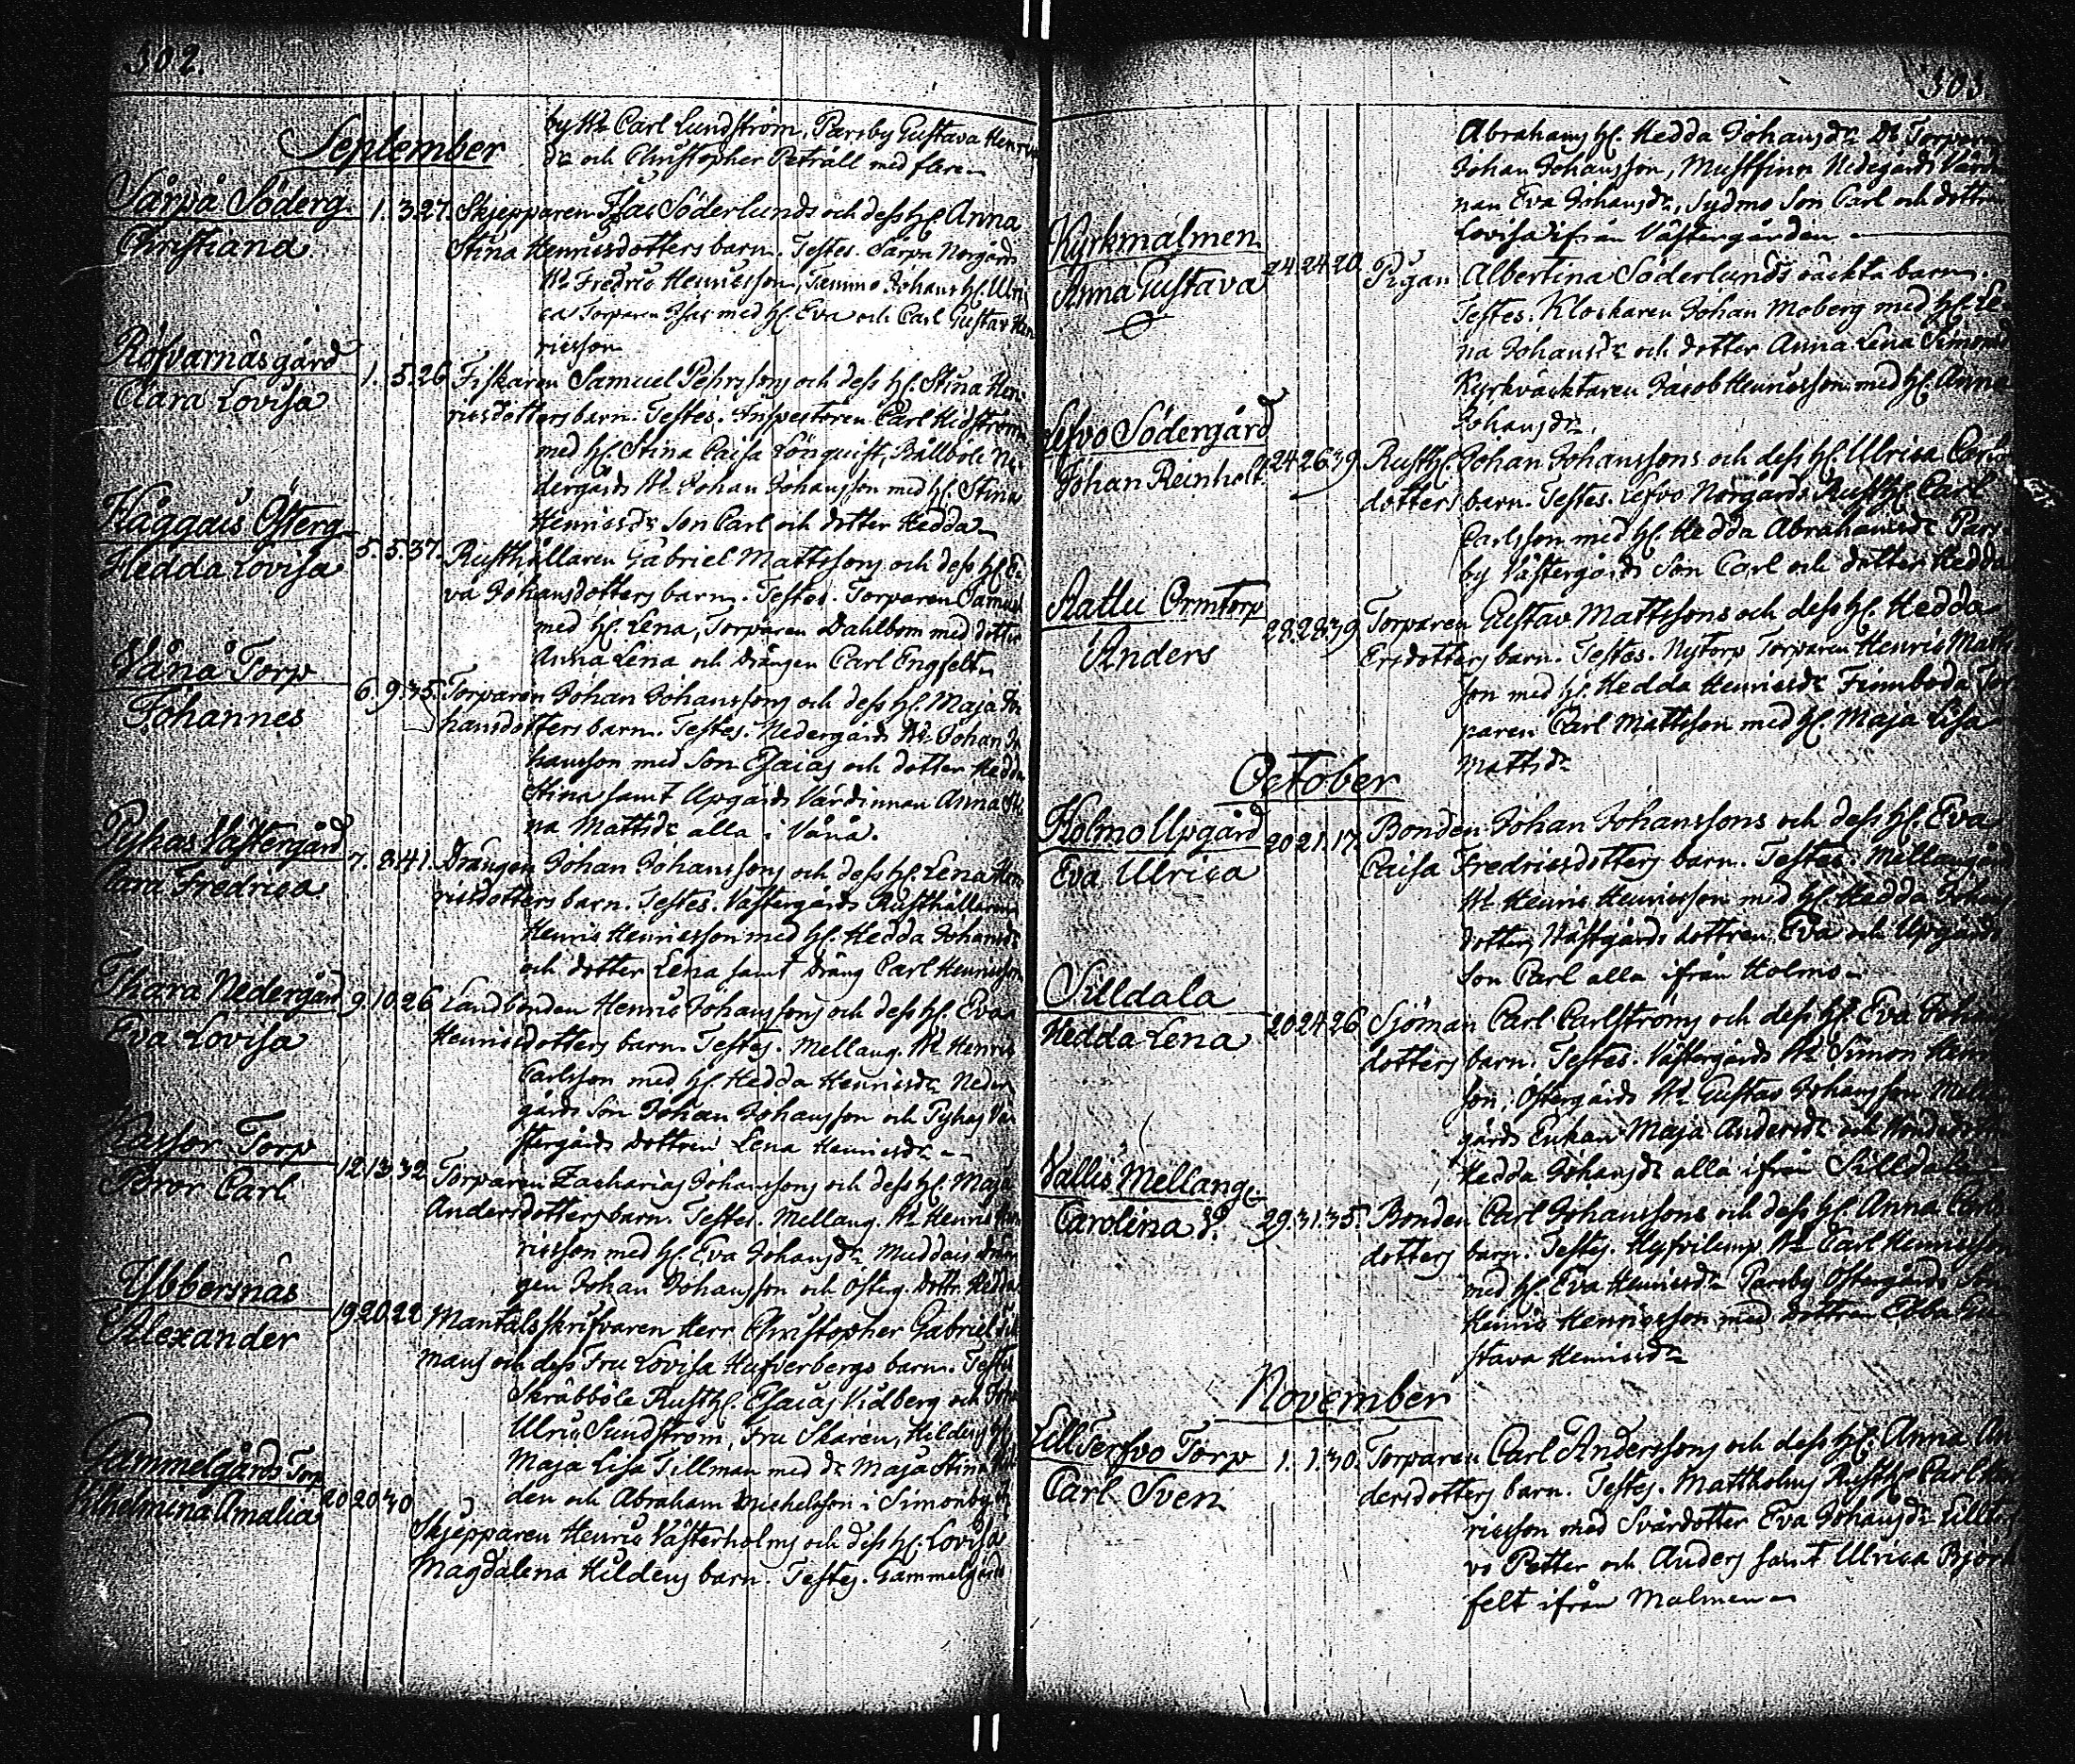 302.
by Wd Carl Lundström, Parsby Gustava Henrics
dr och Christopher Petrall med flere
September
Särpå Söderg.
Christiana
1. 3. 27. Skjepparen Isac Söderlunds och dess h. Anna
Stina Henricsdotters barn. Testes. Särpå Norgårds
Wd Fredric Henricsson, Tammo Johans h. Ulri
ca Torparen Isac med h. Eva och Carl Gustav Hen
ricsson
Röfvarnäsgård
Clara Lovisa
1. 5. 26 Fiskaren Samuel Pehrssons och dess h. Stina Hen
ricsdotters barn. Testes. Inspectoren Carl Hidström
med h. Stina Caisa Lönquist, Bållböle Ne
dergårds Wd Johan Johansson med h. Stina
Henricsdr Son Carl och dotter Hedda
Häggais Österg.
Hedda Lovisa
5. 5. 37. Rusthållaren Gabriel Mattssons och dess h. E
va Johansdotters barn. Testes. Torparen Samuel
med h. Lena, Torparen Dahlbom med dotter
Anna Lena och drängen Carl Engfelt
Vånå Torp
Johannes
6. 9. 35. Torparen Johan Johanssons och dess h. Maja Jo
hansdotters barn. Testes. Nedergårds Wd Johan Jo
hansson med Son Esaias och dotter Hedda
Stina samt Upgårds Värdinnan Anna Sti
na Mattsdr alla i Vånå.
Pykas Västergård
Clara Fredrica
7. 8. 41. Drängen Johan Johanssons och dess h. Lena Hen
ricsdotters barn. Testes. Västergårds Rusthållaren
Henric Henricsson med h. Hedda Johansdr
och dotter Lena samt dräng Carl Henricsson
Thara Nedergård
Eva Lovisa
9. 10. 26 Landbonden Henric Johanssons och dess h. Eva
Henricsdotters barn. Testes. Mellang. Wd Henric
Carlsson med h. Hedda Henricsdr Neder
gårds Son Johan Johansson och Pykas Vä
stergårds dottren Lena Henricsdr
Torp
Bror Carl
12. 13. 32. Torparen Zacharias Johanssons och dess h. Maja
Andersdotters barn. Testes. Mellang. Wd Henric Hen
ricsson med h. Eva Johansdr Muddais drän
gen Johan Johansson och Österg. Dottr. Hedda
Ybbersnäs
Alexander
19 20 22 Mantalsskrifvaren Herr Christopher Gabriel
mans och dess Fru Lovisa Hufverbergs barn. Testes
Skräbböle Rusth. Esaias Vidberg och
Ulric Sundström, Fru Skaren, Hildens h.
Maja Lisa Tillman med dr Maja Stina
den och Abraham Michelsson i Simonby
Gammelgårds Torp
Vilhelmina Amalia
20 20. 30
Skjepparen Henric Västerholms och dess h. Lovisa
Magdalena Hildens barn. Testes. Gammelgårds
303
Abrahams h. Hedda Johansdr Torparen
Johan Johansson, Mustfinn Nedegårds Värdi
nan Eva Johansdr, Sydmo Son Carl och dottren
Lovisa ifrån Västergården
Kyrkmalmen
Anna Gustava
24. 24. 20. Pigan Albertina Söderlunds oäckta barn.
Testes. Klockaren Johan Moberg med h. Le
na Johansdr och dotter Anna Lena Simonsd
Kyrkväcktaren Jacob Henricsson med h. Anna
Johansdr.
Lefvo Södergård
Johan Reinholt
24. 26. 39. Rusth. Johan Johanssons och dess h. Ulrica Carls
dotters barn. Testes. Lefvo Norgårds Rusth. Carl
Carlsson med h. Hedda Abrahamsdr Pars
by Västergårds Son Carl och dotter Hedda
Attu Ormtorp
Anders
28. 28. 39. Torparen Gustav Mattssons och dess h. Hedda
Ersdotters barn. Testes. Nytorp Torparen Henric Matts
son med h. Hedda Henricsdr Finnboda Tor
paren Carl Mattsson med h. Maja Lisa
Mattsdr
October
Holmo Upgård
Eva Ulrica
20 21. 17. Bonden Johan Johanssons och dess h. Eva
Caisa Fredricsdotters barn. Testes. Mellangårds
Wd Henric Henricsson med h. Hedda Johans
dotter, Västgårds dottren Eva och Upgårds
Son Carl alla ifrån Holmo
Silldala
Hedda Lena
20. 24. 26. Sjöman Carl Carlströms och dess h. Eva Johans
dotters barn. Testes. Västergårds Wd Simon Henrics
son, Östergårds Wd Gustav Johansson Mellan
gårds Enkan Maja Andersdr och
Hedda Johansdr alla ifrån Silldala
Vallis Mellang.
Carolina
29. 31. 35. Bonden Carl Johanssons och dess h. Anna Carls
dotters barn. Testes. Hyfvilemp Wd Carl Henricsson
med h. Eva Henricsdr Parsby Östergårds Son
Henric Henricsson med dottren Ebba Gu
stava Henricsdr
November
Lilltervo Torp
Carl Sven
1. 1. 30. Torparen Carl Anderssons och dess h. Anna An
dersdotters barn. Testes. Mattholms Rusth. Carl Hen
ricsson med Svärdotter Eva Johansdr Lillter
vo Petter och Anders samt Ulrica Björk
felt ifrån Malmen